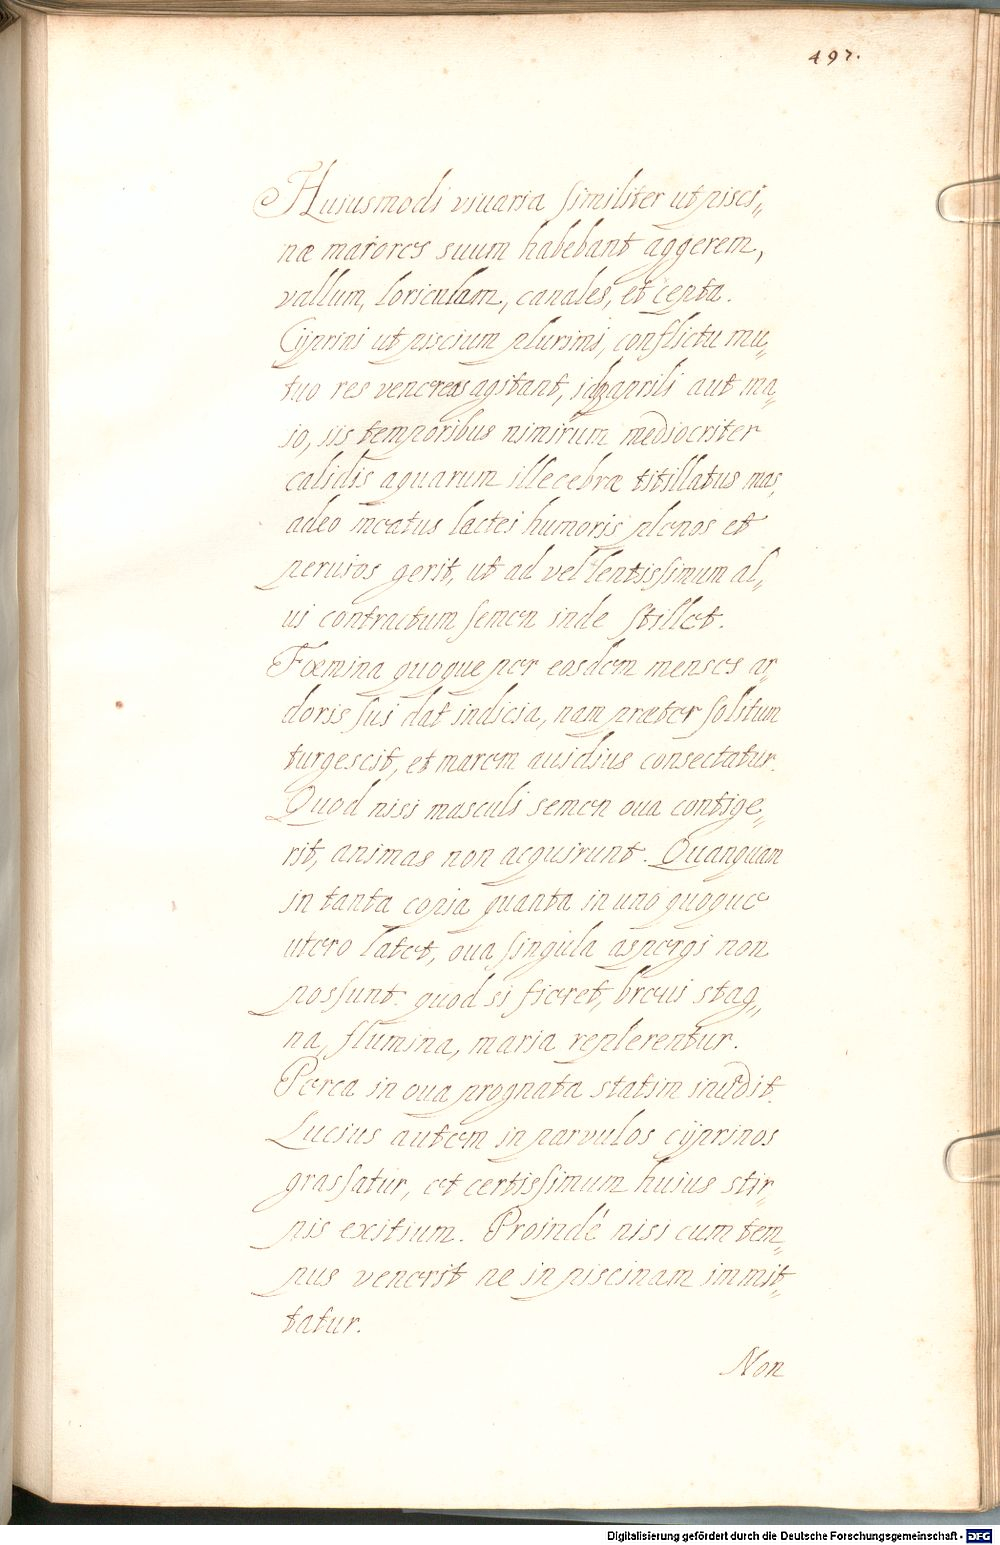 497.
Huiusmodi viuaria similiter ut pisci„
næ maiores suum habebant aggerem,
vallum, loriculam, canales, et septa.
Cyprini ut piscium plurimi, conflictu mu„
tuo res venereas agitant, idq; aprili aut ma„
io, iis temporibus nimirum mediocriter
calidis aquarum illecebræ titillatus mas,
adeo meatus lactei humoris plenos et
peruios gerit, ut ad vel lentissimum al„
ui contractum semen inde stillet.
Fœmina quoque per eosdem menses ar„
doris sui dat indicia, nam præter solitum
turgescit, et marem auidius consectatur.
Quod nisi masculi semen oua contige„
rit, animas non acquirunt. Quanquam
in tanta copia quanta in uno quoque
utero latet, oua singula aspergi non
possunt: quod si fieret, breui stag„
na, flumina, maria replerentur.
Perca in oua prognata statim inuadit.
Lucius autem in parvulos cyprinos
grassatur, et certissimum huius stir„
pis exitium. Proindé nisi cum tem„
pus venerit ne in piscinam immit„
tatur.
Non
Digitalisierung gefördert durch die Deutsche Forschungsgemeinschaft - DFG